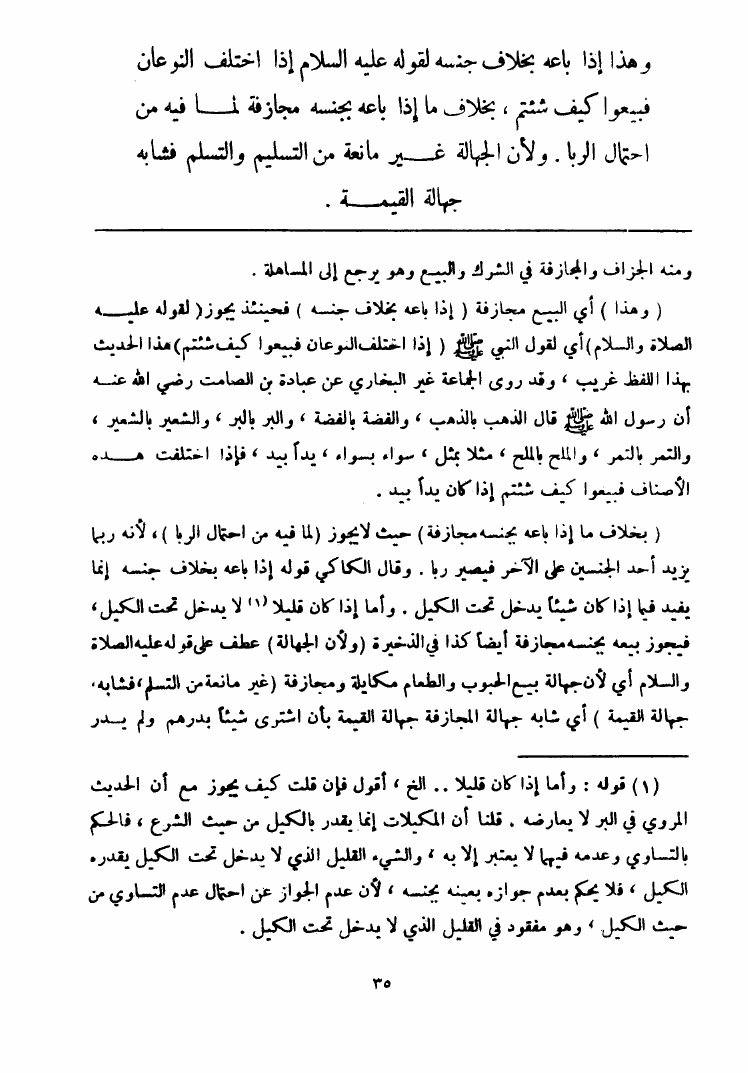 وهذا إذا باعه بخلاف جنسه لقوله عليه السلام إذا اختلف النوعان
فبيعوا كيف شئتم ، بخلاف ما إذا باعه بجنسه مجازفة لما فيه من
احتمال الربا . ولأن الجهالة غير مانعة من التسليم والتسلم فشابه
جهالة القيمة .
ومنه الجزاف والمجازفة في الشرك والبيع وهو يرجع إلى المساهلة .
( وهذا ) أي البيع مجازفة ( إذا باعه بخلاف جنسه ) فحينئذ يجوز ( لقوله عليه
الصلاة والسلام ) أي لقول النبي ﷺ ( إذا اختلف النوعان فبيعوا كيف شئتم ) هذا الحديث
بهذا اللفظ غريب ، وقد روى الجماعة غير البخاري عن عبادة بن الصامت رضي الله عنه
أن رسول الله ﷺ قال الذهب بالذهب ، والفضة بالفضة ، والبر بالبر ، والشعير بالشعير ،
والتمر بالتمر ، والملح بالملح ، مثلا بمثل ، سواء بسواء ، يداً بيد ، فإذا اختلفت هذه
الأصناف فبيعوا كيف شئتم إذا كان يداً بيد .
( بخلاف ما إذا باعه بجنسه مجازفة ) حيث لا يجوز ( لما فيه من احتمال الربا ) ، لأنه ربما
يزيد أحد الجنسين على الآخر فيصير ربا . وقال الكاكي قوله إذا باعه بخلاف جنسه إنما
يفيد فيما إذا كان شيئاً يدخل تحت الكيل . وأما إذا كان قليلا (١) لا يدخل تحت الكيل ،
فيجوز بيعه بجنسه مجازفة أيضاً كذا في الذخيرة ( ولأن الجهالة ) عطف على قوله عليه الصلاة
والسلام أي لأن جهالة بيع الحبوب والطعام مكايلة ومجازفة ( غير مانعة من التسلم ، فشابه
جهالة القيمة ) أي شابه جهالة المجازفة جهالة القيمة بأن اشترى شيئاً بدرهم ولم يدر
(١) قوله : وأما إذا كان قليلا .. الخ ، أقول فإن قلت كيف يجوز مع أن الحديث
المروي في البر لا يعارضه . قلنا أن المكيلات إنما يقدر بالكيل من حيث الشرع ، فالحكم
بالتساوي وعدمه فيها لا يعتبر إلا به ، والشيء القليل الذي لا يدخل تحت الكيل يقدره
الكيل ، فلا يحكم بعدم جوازه بعينه بجنسه ، لأن عدم الجواز عن احتمال عدم التساوي من
حيث الكيل ، وهو مفقود في القليل الذي لا يدخل تحت الكيل .
٣٥